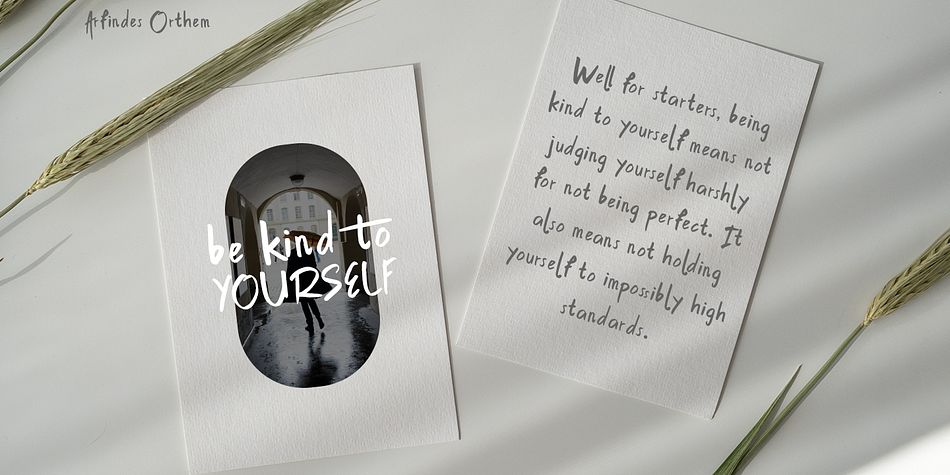 Arfindes Orthem
be kind to
YOURSELF
Well for starters, being
kind to yourself means not
judging yourself harshly
for not being perfect. It
also means not holding
yourself to impossibly high
standards.